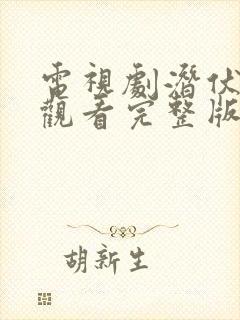 電視劇潛伏
觀看完整版
胡新生